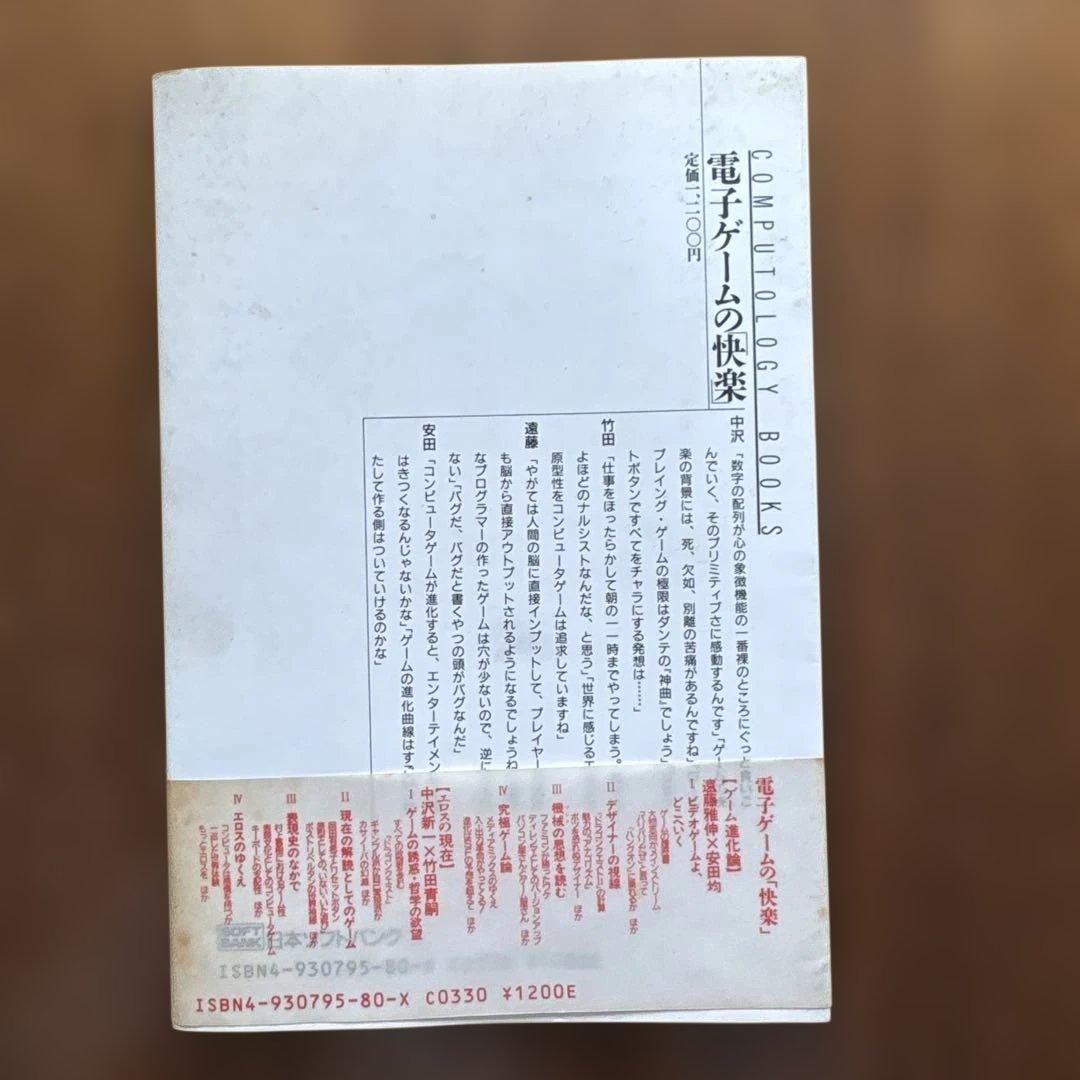 COMPUTOLOGY BOOKS
電子ゲームの「快楽」
定価一、二〇〇円
中沢「数字の配列が心の象徴機能の一番裸のところにぐっと
んでいく、そのプリミティブさに感動するんです」「ゲーム
楽の背景には、死、欠如、別離の苦痛があるんですね」
プレイング・ゲームの極限はダンテの『神曲』でしょう」
トボタンですべてをチャラにする発想は……」
竹田「仕事をほったらかして朝の一一時までやってしまう。
よほどのナルシストなんだな、と思う」「世界に感じるエ
原型性をコンピュータゲームは追求していますね」
遠藤「やがては人間の脳に直接インプットして、プレイヤー
も脳から直接アウトプットされるようになるでしょうね
なプログラマーの作ったゲームは穴が少ないので、逆に
ない」「バグだ、バグだと書くやつの頭がバグなんだ」
安田「コンピュータゲームが進化すると、エンターテイメン
はきつくなるんじゃないかな」「ゲームの進化曲線はすご
たして作る側はついていけるのかな」
電子ゲームの「快楽」
【ゲーム進化論】
遠藤雅伸×安田均
I ビデオゲームよ、
どこへいく
II デザイナーの視線
『ドラゴンクエスト』の計算
III 機械の思想を読む
ファミコンが勝ったワケ
IV 究極ゲーム論
メディアミックスのゆくえ
【エロスの現在】
中沢新一×竹田青嗣
I ゲームの誘惑・哲学の欲望
すべての始まりを含む
『ドラゴンクエスト』
カサノーバの幻滅 ほか
II 現在の解読としてのゲーム
III 表現史のなかで
キーボードの支配性 ほか
IV エロスのゆくえ
コンピュータは無意識を持つか
もっとエロスを ほか
SOFT BANK 日本ソフトバンク
ISBN4-930795-80-X
ISBN4-930795-80-X C0330 ¥1200E